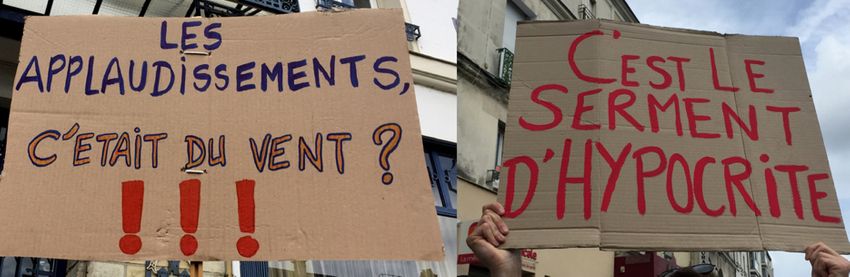 LES
APPLAUDISSEMENTS,
C'ETAIT DU VENT ?
!!!
C'EST LE
SERMENT
D'HYPOCRITE